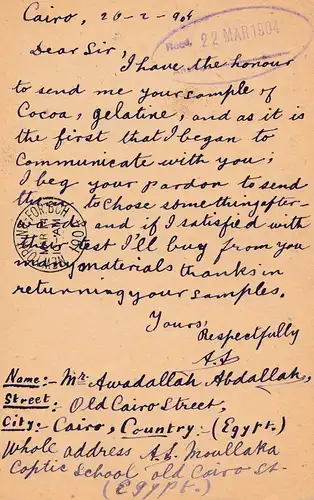 Cairo, 26-2-904
Recd. 22 MAR 1904
Dear Sir,
I have the honour
to send me your sample of
Cocoa, gelatine, and as it is
the first that I began to
communicate with you;
I beg your pardon to send
to chose something after-
and if I satisfied with
test I'll buy from you
many materials thanks in
returning your samples.
Yours,
Respectfully
A.A
Name:- Mr. Awadallah Abdallah,
Street:- Old Cairo Street,
City:- Cairo, Country:- (Egypt.)
Whole address A.S. Moullaka
Coptic School old Cairo St.
(EGYPT.)